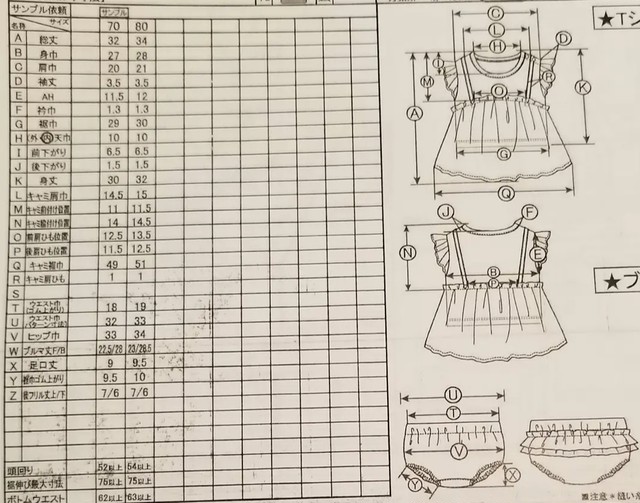 サンプル依頼 サンプル
名称 サイズ 70 80
A 総丈 32 34
B 身巾 27 28
C 肩巾 20 21
D 袖丈 3.5 3.5
E AH 11.5 12
F 衿巾 1.3 1.3
G 裾巾 29 30
H (外・内)天巾 10 10
I 前下がり 6.5 6.5
J 後下がり 1.5 1.5
K 身丈 30 32
L キャミ肩巾 14.5 15
M キャミ前付け位置 11 11.5
N キャミ後付け位置 14 14.5
O 前肩ひも位置 12.5 13.5
P 後肩ひも位置 11.5 12.5
Q キャミ裾巾 49 51
R キャミ肩ひも 1 1
S
T ウエスト巾(ゴム上がり) 18 19
U ウエスト巾(パターン寸法) 32 33
V ヒップ巾 33 34
W ブルマ丈F/B 22.5/28 23/28.5
X 足口丈 9 9.5
Y 裾巾ゴム上がり 9.5 10
Z 後フリル丈上/下 7/6 7/6
頭回り 52以上 54以上
裾伸び最大寸法 75以上 75以上
ボトムウエスト 62以上 63以上
★Tシ
C
L
H
D
I
M
R
O
K
A
G
Q
J F
N
E
B
P
★ブ
U
T
V
Y
X
※注意 * 縫い